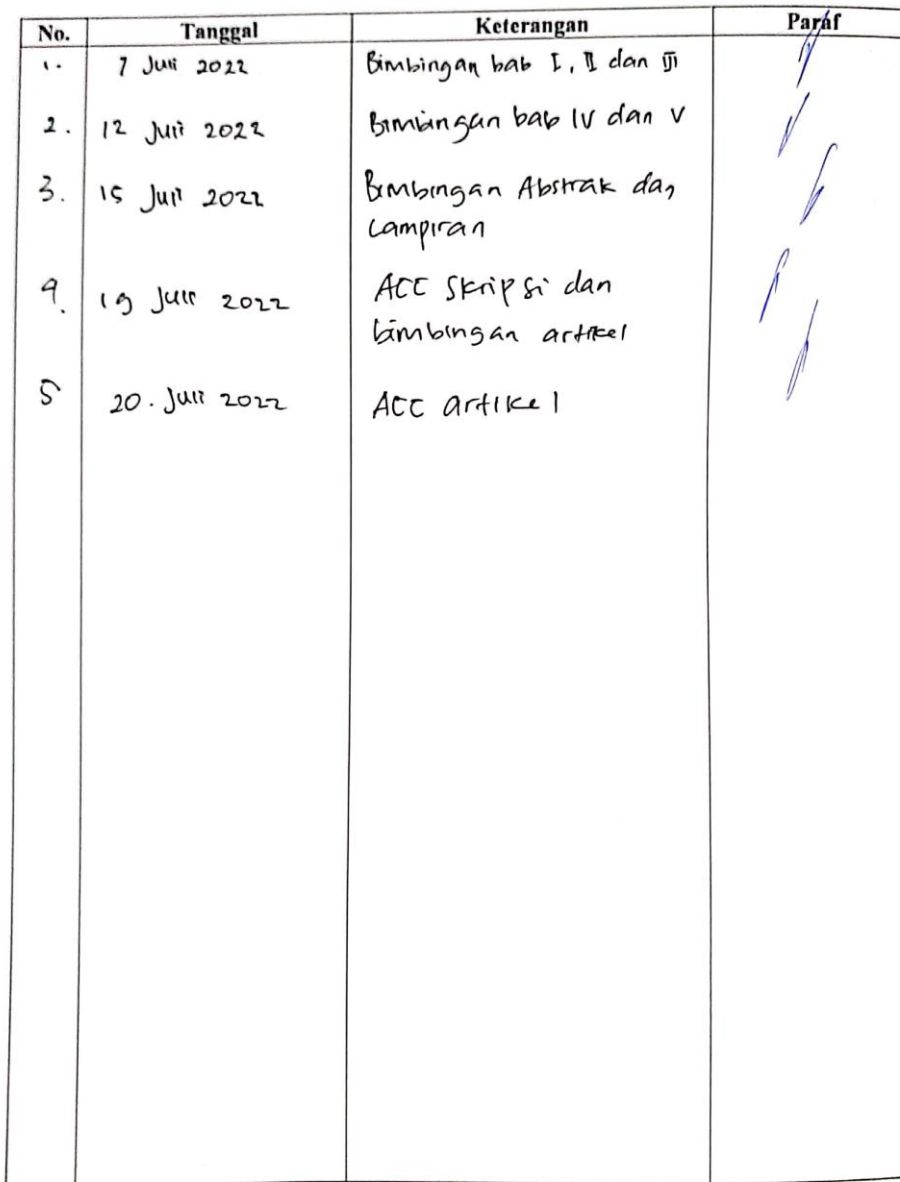 No. Tanggal Keterangan Paraf
1. 7 Juli 2022 Bimbingan bab I, II dan III
2. 12 Juli 2022 Bimbingan bab IV dan V
3. 15 Juli 2022 Bimbingan Abstrak dan
Lampiran
4. 19 Juli 2022 ACC Skripsi dan
bimbingan artikel
5 20. Juli 2022 ACC artikel